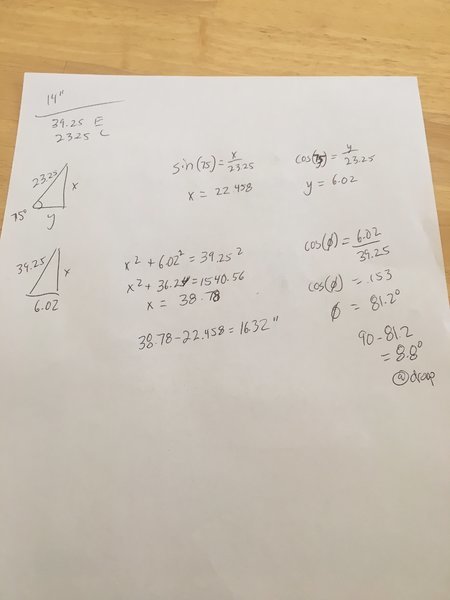 14"
39.25 E
23.25 C
23.25
x
75°
y
sin(75) = x/23.25
x = 22.458
cos(75) = y/23.25
y = 6.02
39.25
x
6.02
x² + 6.02² = 39.25²
x² + 36.24 = 1540.56
x = 38.78
38.78 - 22.458 = 16.32"
cos(ϕ) = 6.02/39.25
cos(ϕ) = .153
ϕ = 81.2°
90 - 81.2
= 8.8°
@drop